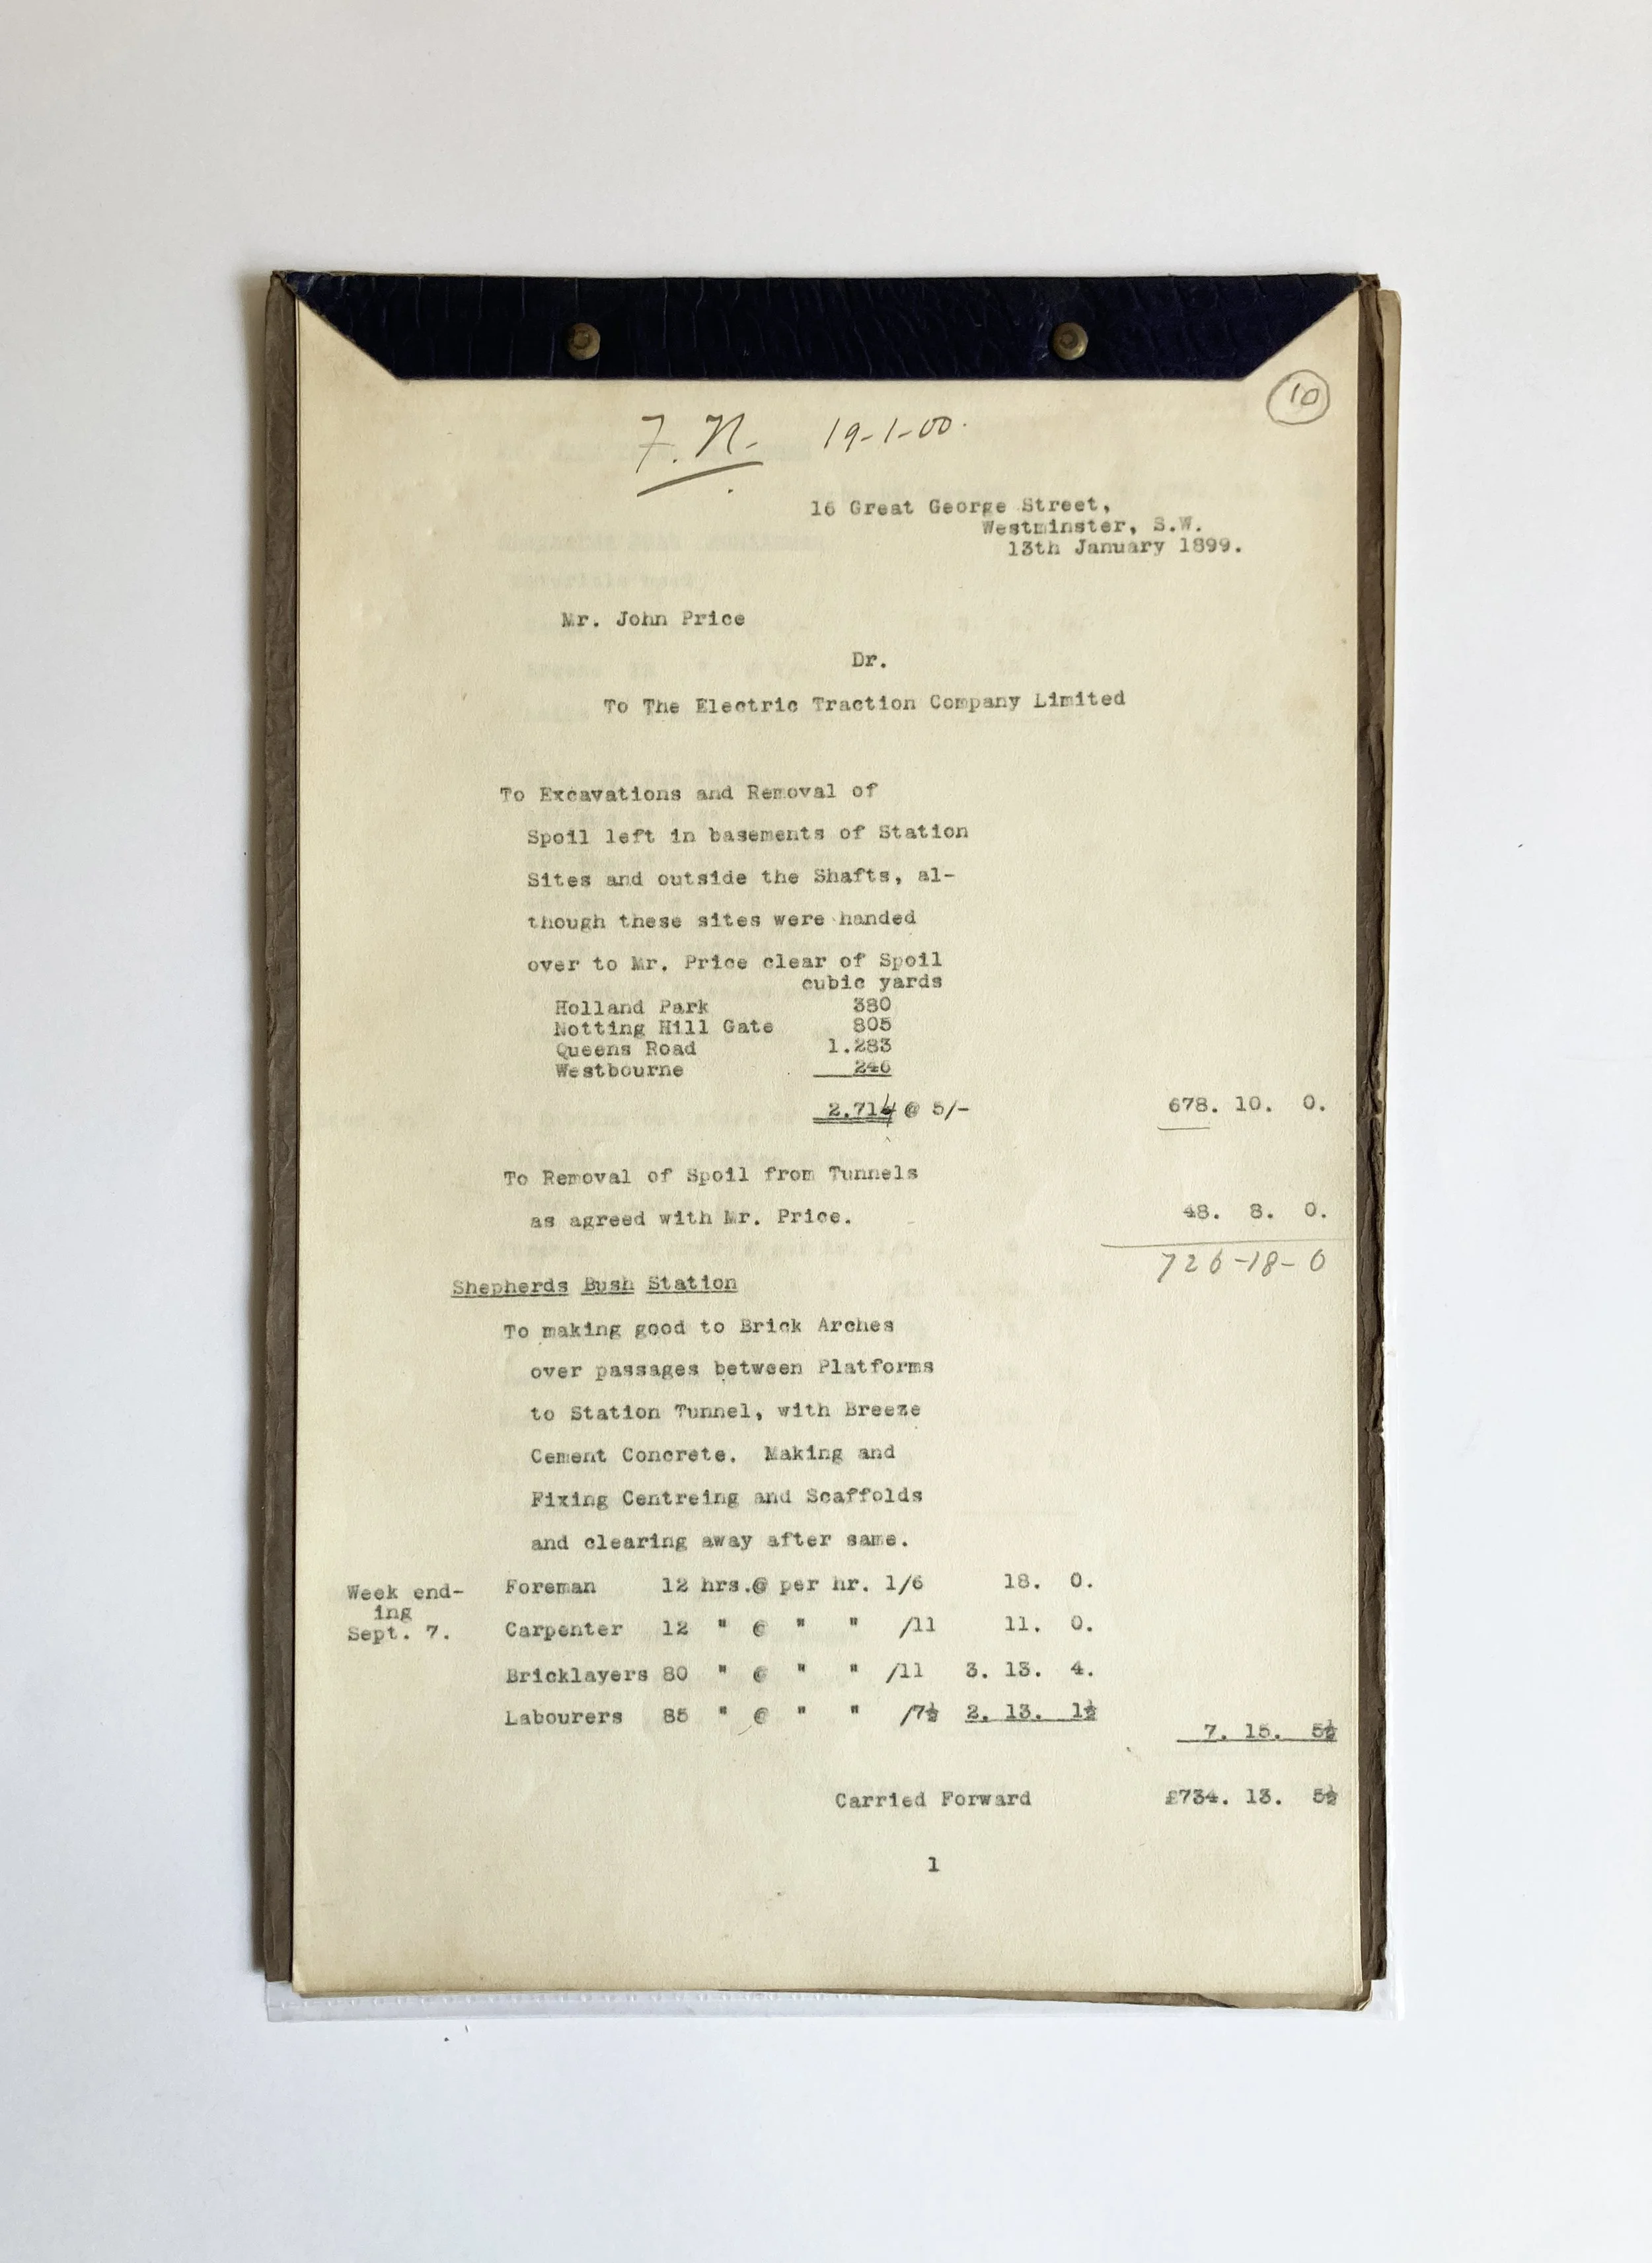 10
F. N. 19-1-00.
16 Great George Street,
Westminster, S.W.
13th January 1899.
Mr. John Price
Dr.
To The Electric Traction Company Limited
To Excavations and Removal of
Spoil left in basements of Station
Sites and outside the Shafts, al-
though these sites were handed
over to Mr. Price clear of Spoil
cubic yards
Holland Park 380
Notting Hill Gate 805
Queens Road 1.283
Westbourne 246
2.714 @ 5/- 678. 10. 0.
To Removal of Spoil from Tunnels
as agreed with Mr. Price. 48. 8. 0.
726-18-0
Shepherds Bush Station
To making good to Brick Arches
over passages between Platforms
to Station Tunnel, with Breeze
Cement Concrete. Making and
Fixing Centreing and Scaffolds
and clearing away after same.
Week end-
ing
Sept. 7.
Foreman 12 hrs.@ per hr. 1/6 18. 0.
Carpenter 12 " @ " " /11 11. 0.
Bricklayers 80 " @ " " /11 3. 13. 4.
Labourers 85 " @ " " /7½ 2. 13. 1½
7. 15. 5½
Carried Forward £734. 13. 5½
1